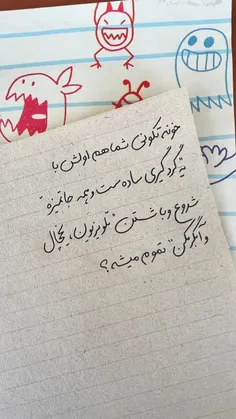 خونه تکونی شما هم اولش با
یه "گردگیری ساده ست و همه جا تمیزه"
شروع و با شستن "تلویزیون، یخچال
و آبگرمکن" تموم میشه؟